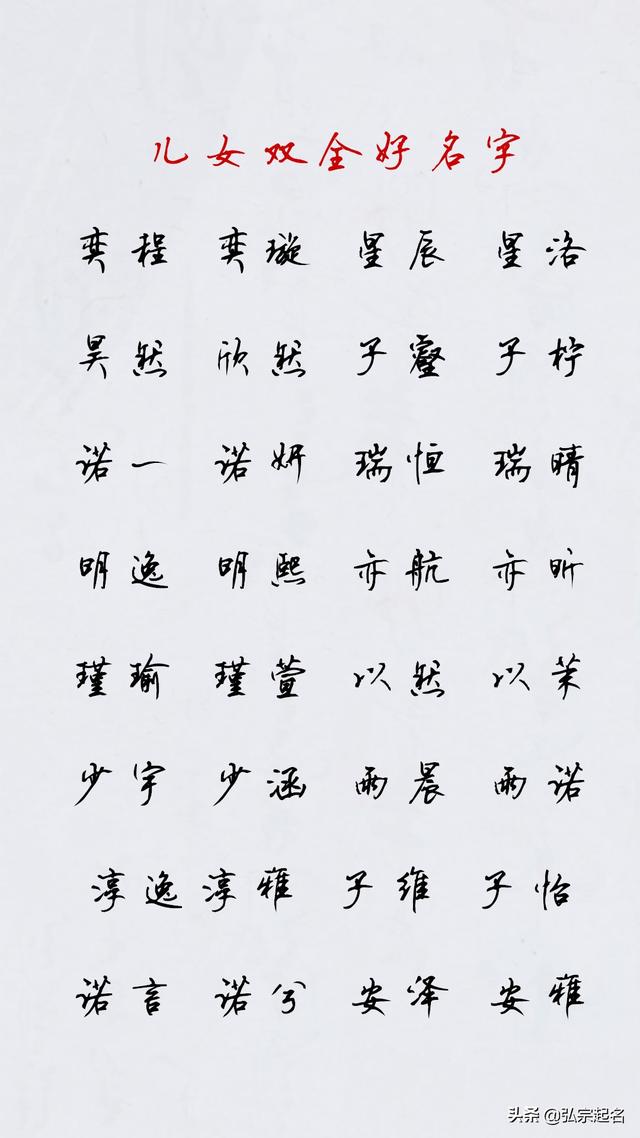 儿女双全好名字
奕程 奕璇 星辰 星洛
昊然 欣然 子睿 子柠
诺一 诺妍 瑞恒 瑞晴
明逸 明熙 亦航 亦昕
瑾瑜 瑾萱 以然 以茉
少宇 少涵 雨晨 雨诺
淳逸 淳雅 子维 子怡
诺言 诺兮 安泽 安雅
头条 @弘宗起名